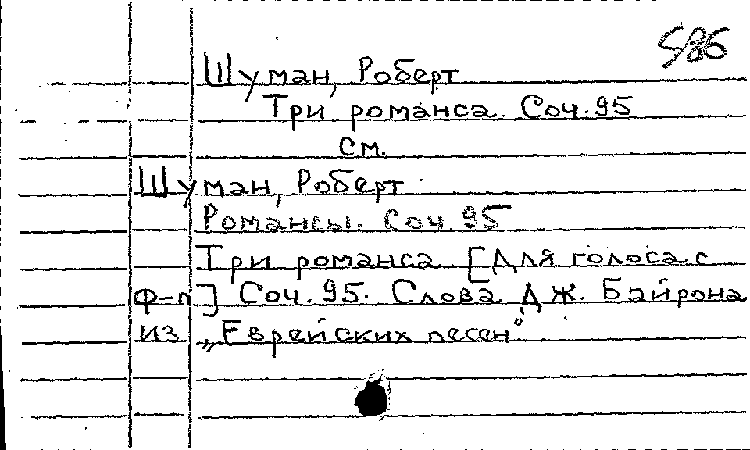 586
Шуман, Роберт
Три романса. Соч. 95
см.
Шуман, Роберт
Романсы. Соч. 95
Три романса. [Для голоса с
ф-п] Соч. 95. Слова Дж. Байрона
из „Еврейских песен"